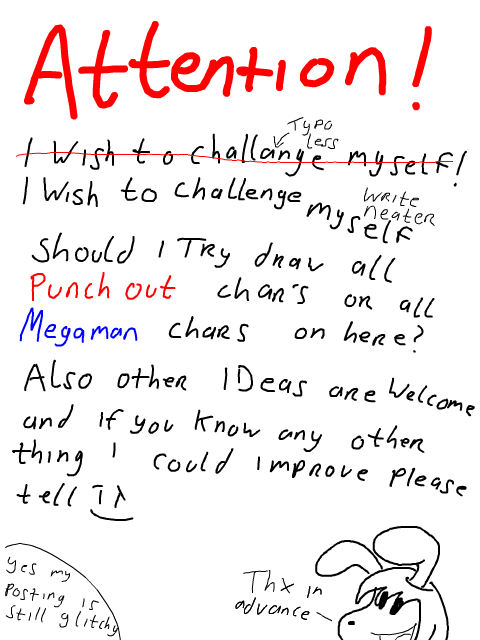 Attention!
Typo
less
I Wish to challange myself!
I Wish to challenge myself
Write
neater
Should I Try draw all
Punch out char's or all
Megaman chars on here?
Also other IDeas are Welcome
and if you know any other
thing I could improve please
tell
Yes my
Posting is
still glitchy
Thx in
advance